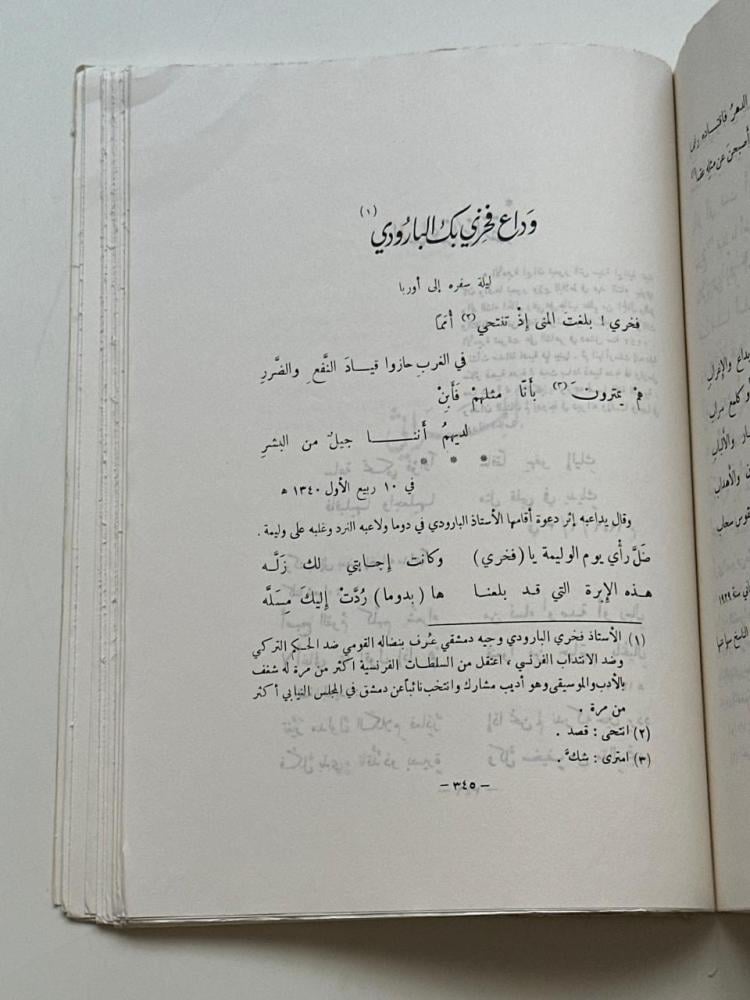 وَداع فخري بك البارودي (١)
ليلة سفره إلى أوربا
فخري ! بلغتَ المنى إذْ تنتحي (٢) أمَماً
في الغربِ حازوا قيادَ النَّفعِ والضَّررِ
همْ يمترونَ (٣) بأنّا مثلهمْ فَأَبِنْ
لديهمُ أننا جيلٌ من البشرِ
* * *
في ١٠ ربيع الأول ١٣٤٠ هـ
وقال يداعبه إثر دعوة أقامها الأستاذ البارودي في دوما ولاعبه النرد وغلبه على وليمة .
ضَلَّ رأي يوم الوليمة يا (فخري) وكانت إجابتي لك زَلَّه
هذه الإبرة التي قد بلعنا ها (بدوما) رُدَّتْ إليكَ مِسَلَّه
(١) الأستاذ فخري البارودي وجيه دمشقي عُرف بنضاله القومي ضد الحكم التركي
وضد الانتداب الفرنسي ، اعتقل من السلطات الفرنسية أكثر من مرة له شغف
بالأدب والموسيقى وهو أديب مشارك وانتخب نائباً عن دمشق في المجلس النيابي أكثر
من مرة .
(٢) انتحى : قصد .
(٣) امترى : شكَّ .
- ٣٤٥ -